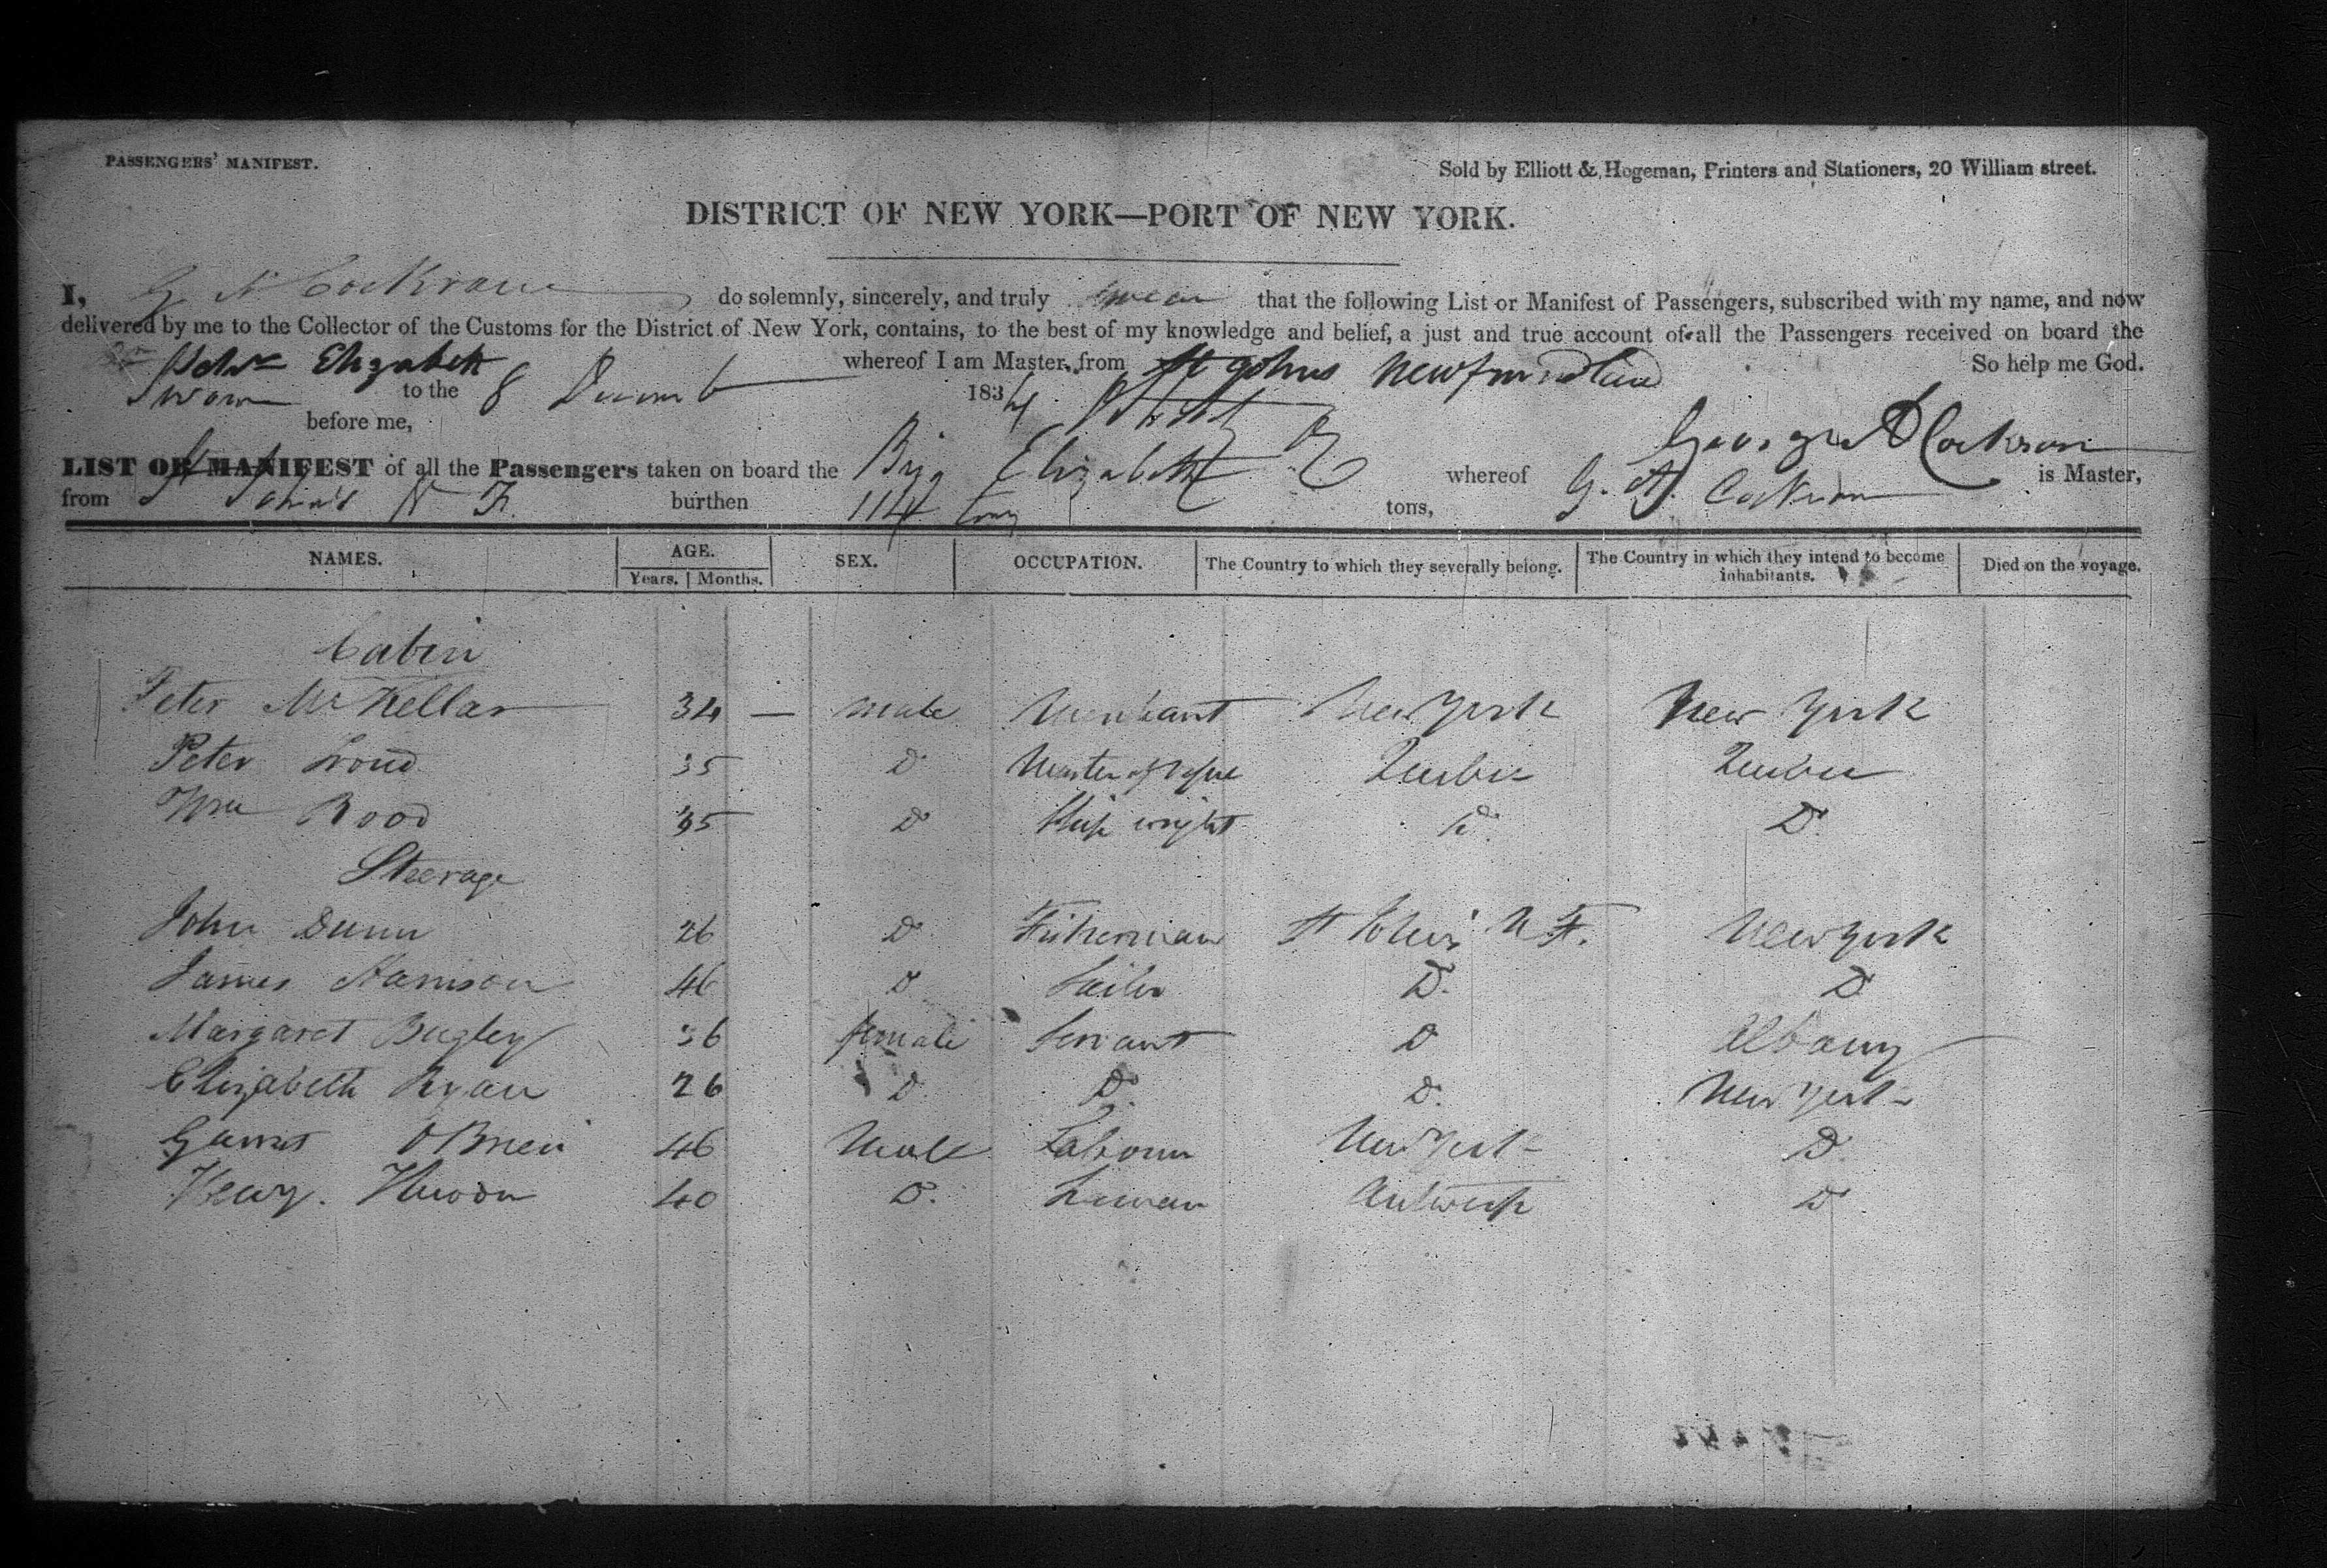 PASSENGERS' MANIFEST.
Sold by Elliott & Hogeman, Printers and Stationers, 20 William street.
DISTRICT OF NEW YORK—PORT OF NEW YORK.
I, G A Cockran do solemnly, sincerely, and truly swear that the following List or Manifest of Passengers, subscribed with my name, and now
delivered by me to the Collector of the Customs for the District of New York, contains, to the best of my knowledge and belief, a just and true account of all the Passengers received on board the
Elizabeth whereof I am Master, from St Johns Newfoundland So help me God.
Sworn to the 8 Decemb 1834
before me,
George A Cockran
LIST OR MANIFEST of all the Passengers taken on board the Brig Elizabeth whereof G. A. Cockran is Master,
from St John's N F. burthen 114 tons,
NAMES. AGE. SEX. OCCUPATION. The Country to which they severally belong. The Country in which they intend to become inhabitants. Died on the voyage.
Years. Months.
Cabin
Peter McKellar 34 — male Merchant New York New York
Peter 35 D Master of Quebec Quebec
Wm Rood 35 D Ship wright D. D.
Steerage
John Dunn 26 D Fisherman St Johns N F. New York
James Harrison 46 D Sailor D. D
Margaret Bugley 36 female Servant D Albany
Elizabeth Ryan 26 D D. D. New York
Garret O'Brien 46 Male Labourer New York D.
40 D. Antwerp D